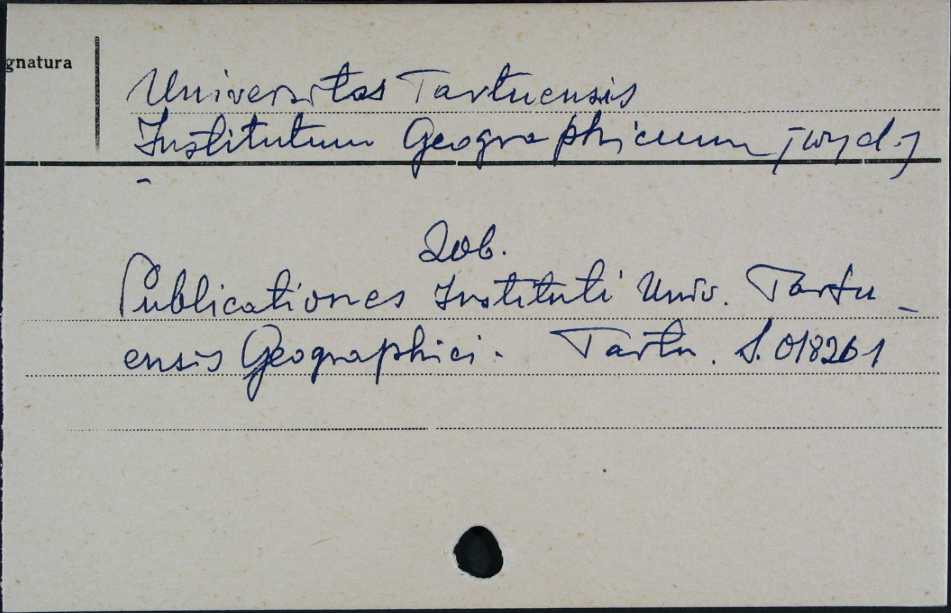 gnatura
Universitas Tartuensis
Institutum Geographicum [wyd.]
Zob.
Publicationes Instituti Univ. Tartu-
ensis Geographici. Tartu. S. 018261